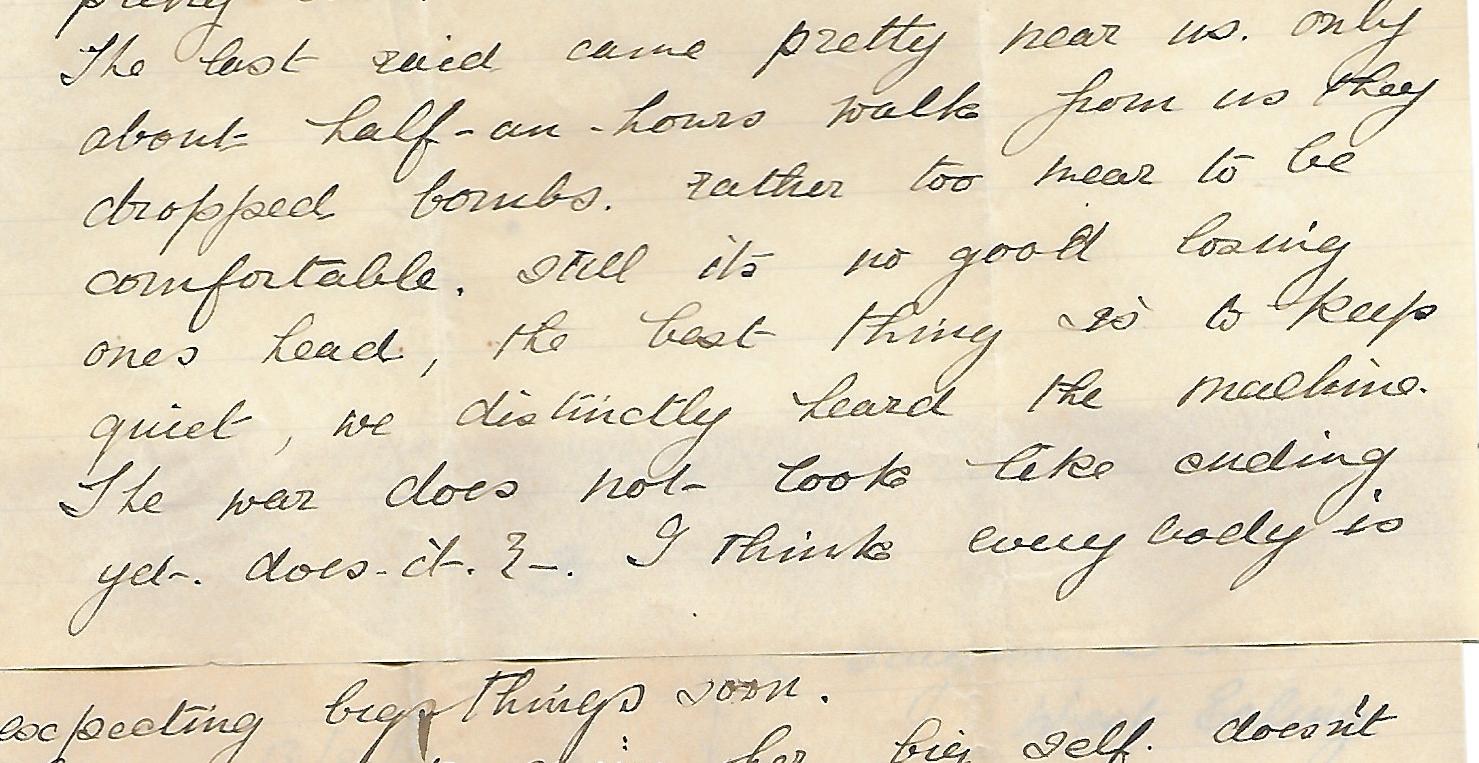 The last raid came pretty near us. only
about half-an-hours walk from us they
dropped bombs. rather too near to be
comfortable. still its no good losing
ones head, the best thing is to keep
quiet, we distinctly heard the machine.
The war does not look like ending
yet. does-it. ?-. I think every body is
expecting big things soon.
her big self. doesn't